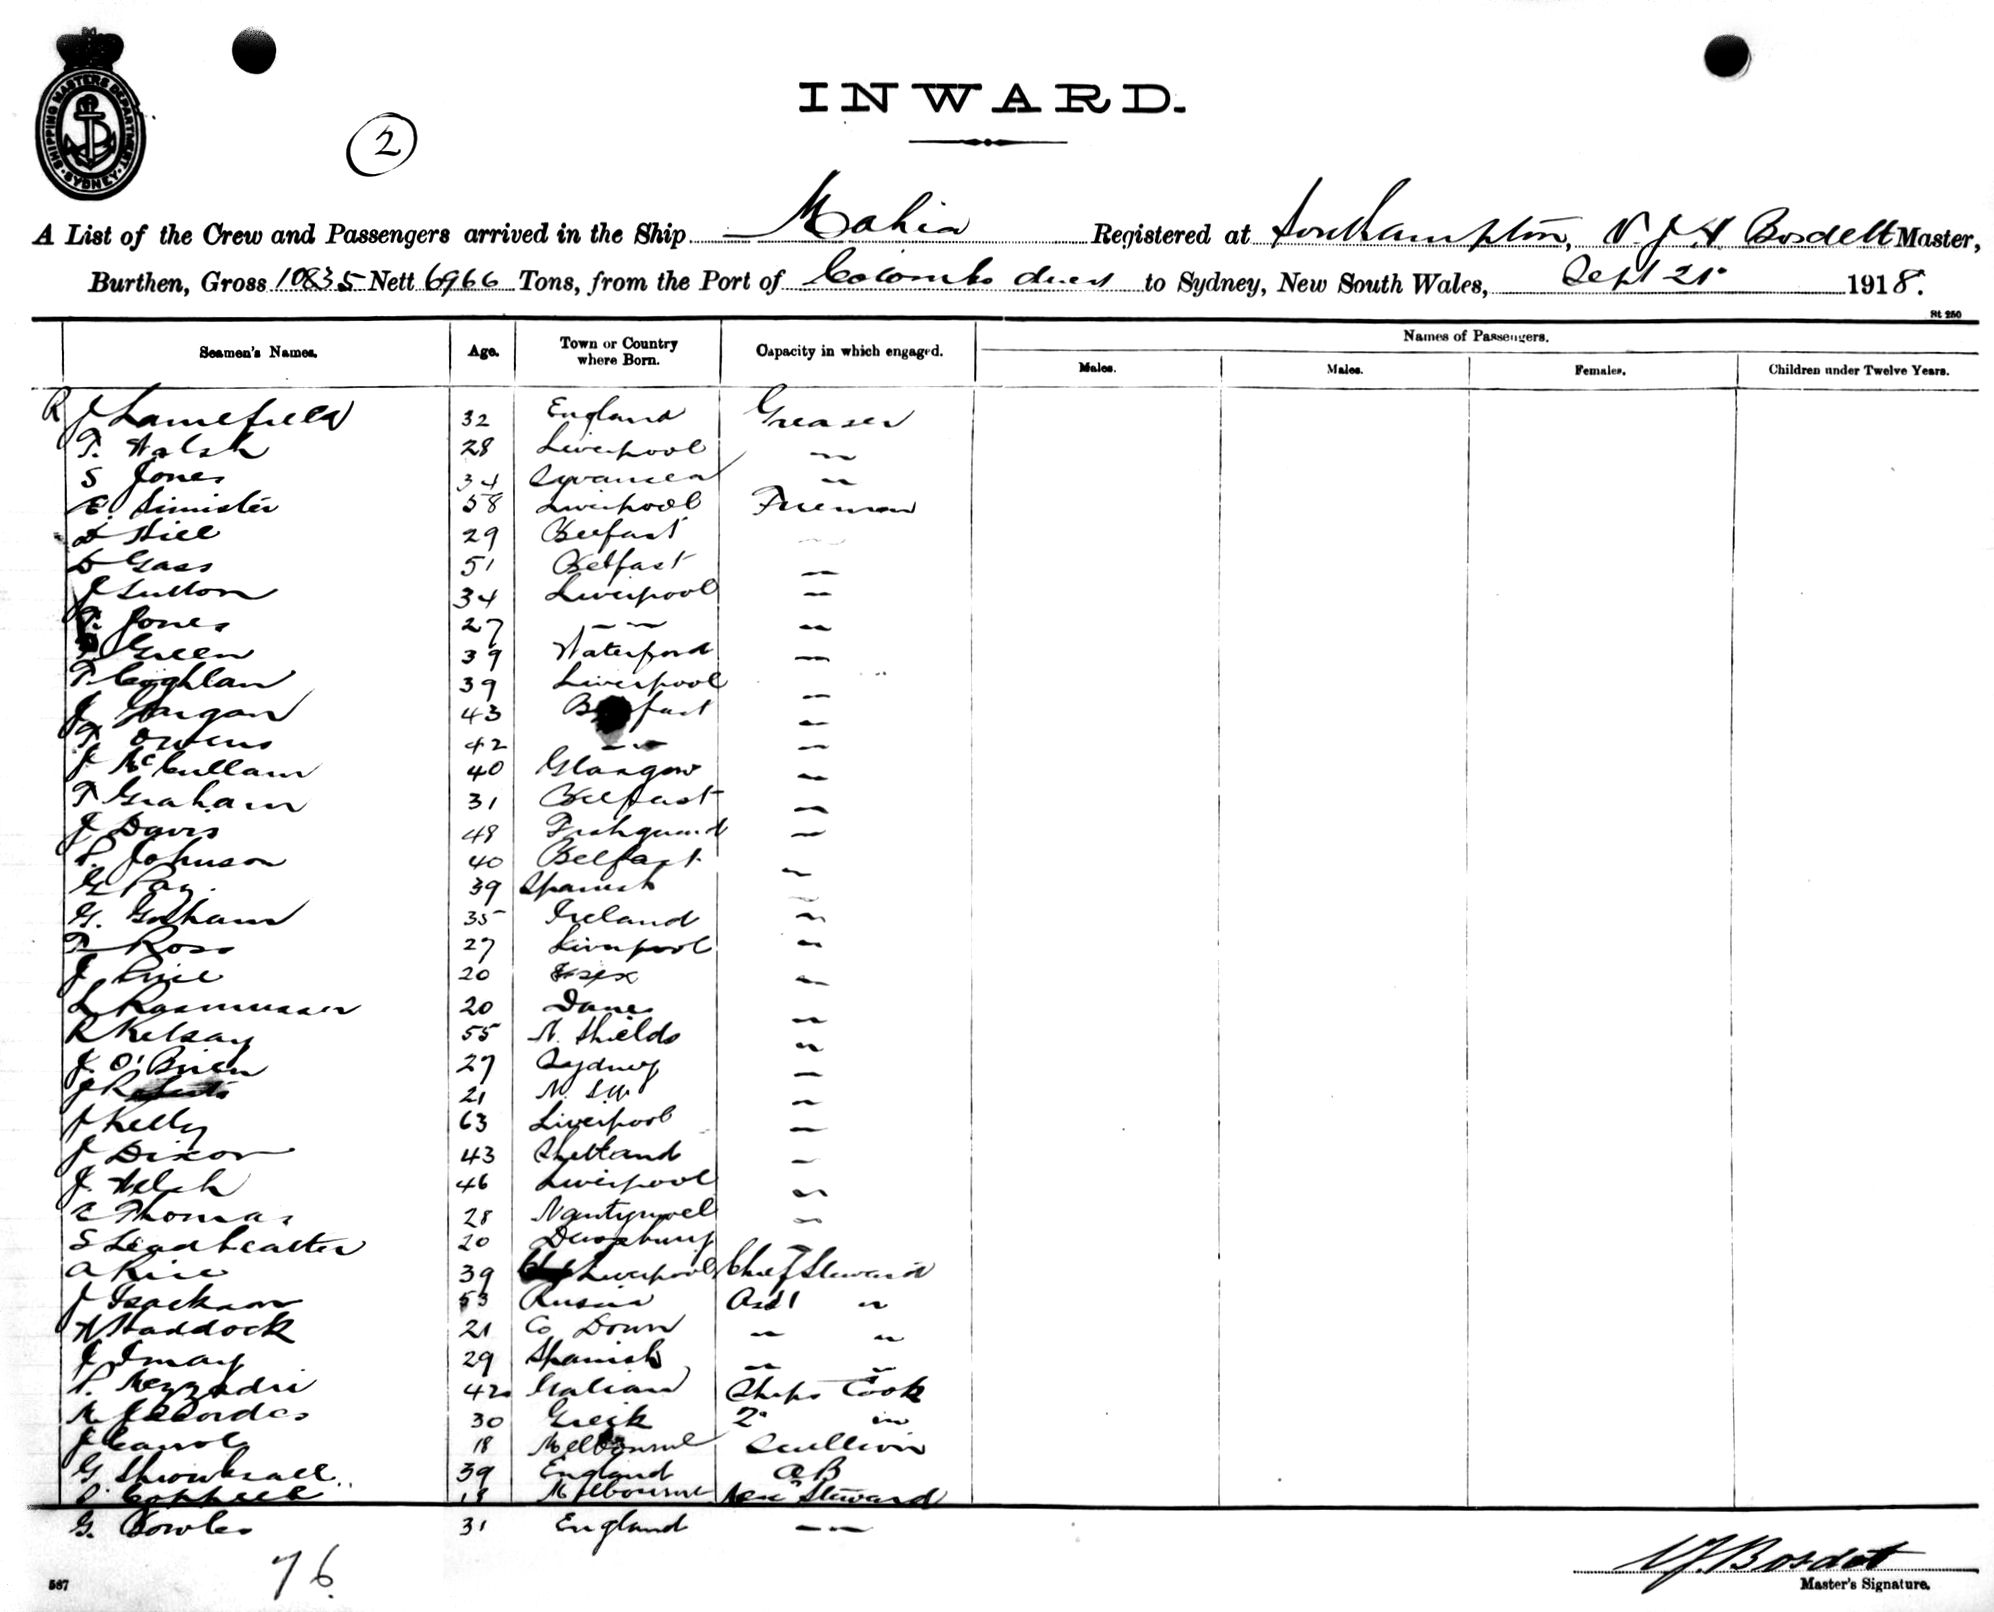 SHIPPING MASTERS DEPARTMENT
SYDNEY
2
INWARD.
A List of the Crew and Passengers arrived in the Ship Mahia Registered at Southampton, V. J. H Bosdett Master,
Burthen, Gross 10835 Nett 6966 Tons, from the Port of Colombo direct to Sydney, New South Wales, Sept 21st 1918.
St 250
Seamen's Names. Age. Town or Country where Born. Capacity in which engaged. Names of Passengers.
Males. Males. Females. Children under Twelve Years.
R J Lanefield 32 England Greaser
T. Walsh 28 Liverpool "
S Jones 34 Swansea "
E. Simister 58 Liverpool Fireman
Hill 29 Belfast "
D Gass 51 Belfast "
J Sutton 34 Liverpool "
T. Jones 27 " "
Green 39 Waterford "
T. Coghlan 39 Liverpool "
J Gargan 43 Belfast "
T Owens 42 " "
J McCullam 40 Glasgow "
T Graham 31 Belfast "
J Davis 48 Fishguard "
P. Johnson 40 Belfast "
G Pay 39 Spanish "
G. Graham 35 Ireland "
T Ross 27 Liverpool "
J Price 20 Essex "
L Rasmussen 20 Danes "
R Kelsay 55 N. Shields "
J. O'Brien 27 Sydney "
J Roberts 21 N. S. W "
J Kelly 63 Liverpool "
J Dixon 43 Shetland "
J. Welsh 46 Liverpool "
E Thomas 28 Nantymoel "
S Leadbeatter 20 Dewsbury "
A Rice 39 Liverpool Chief Steward
J Isackson 53 Russia Asst "
W Haddock 21 Co Down " "
J Imay 29 Spanish " "
P. Mezzadri 42 Italian Ships Cook
M 30 Greek 2nd "
J Carrol 18 Melbourne Scullion
G. 39 England AB
Coppell 18 Melbourne Steward
G. Bowles 31 England "
76
V J Bosdet
Master's Signature.
567